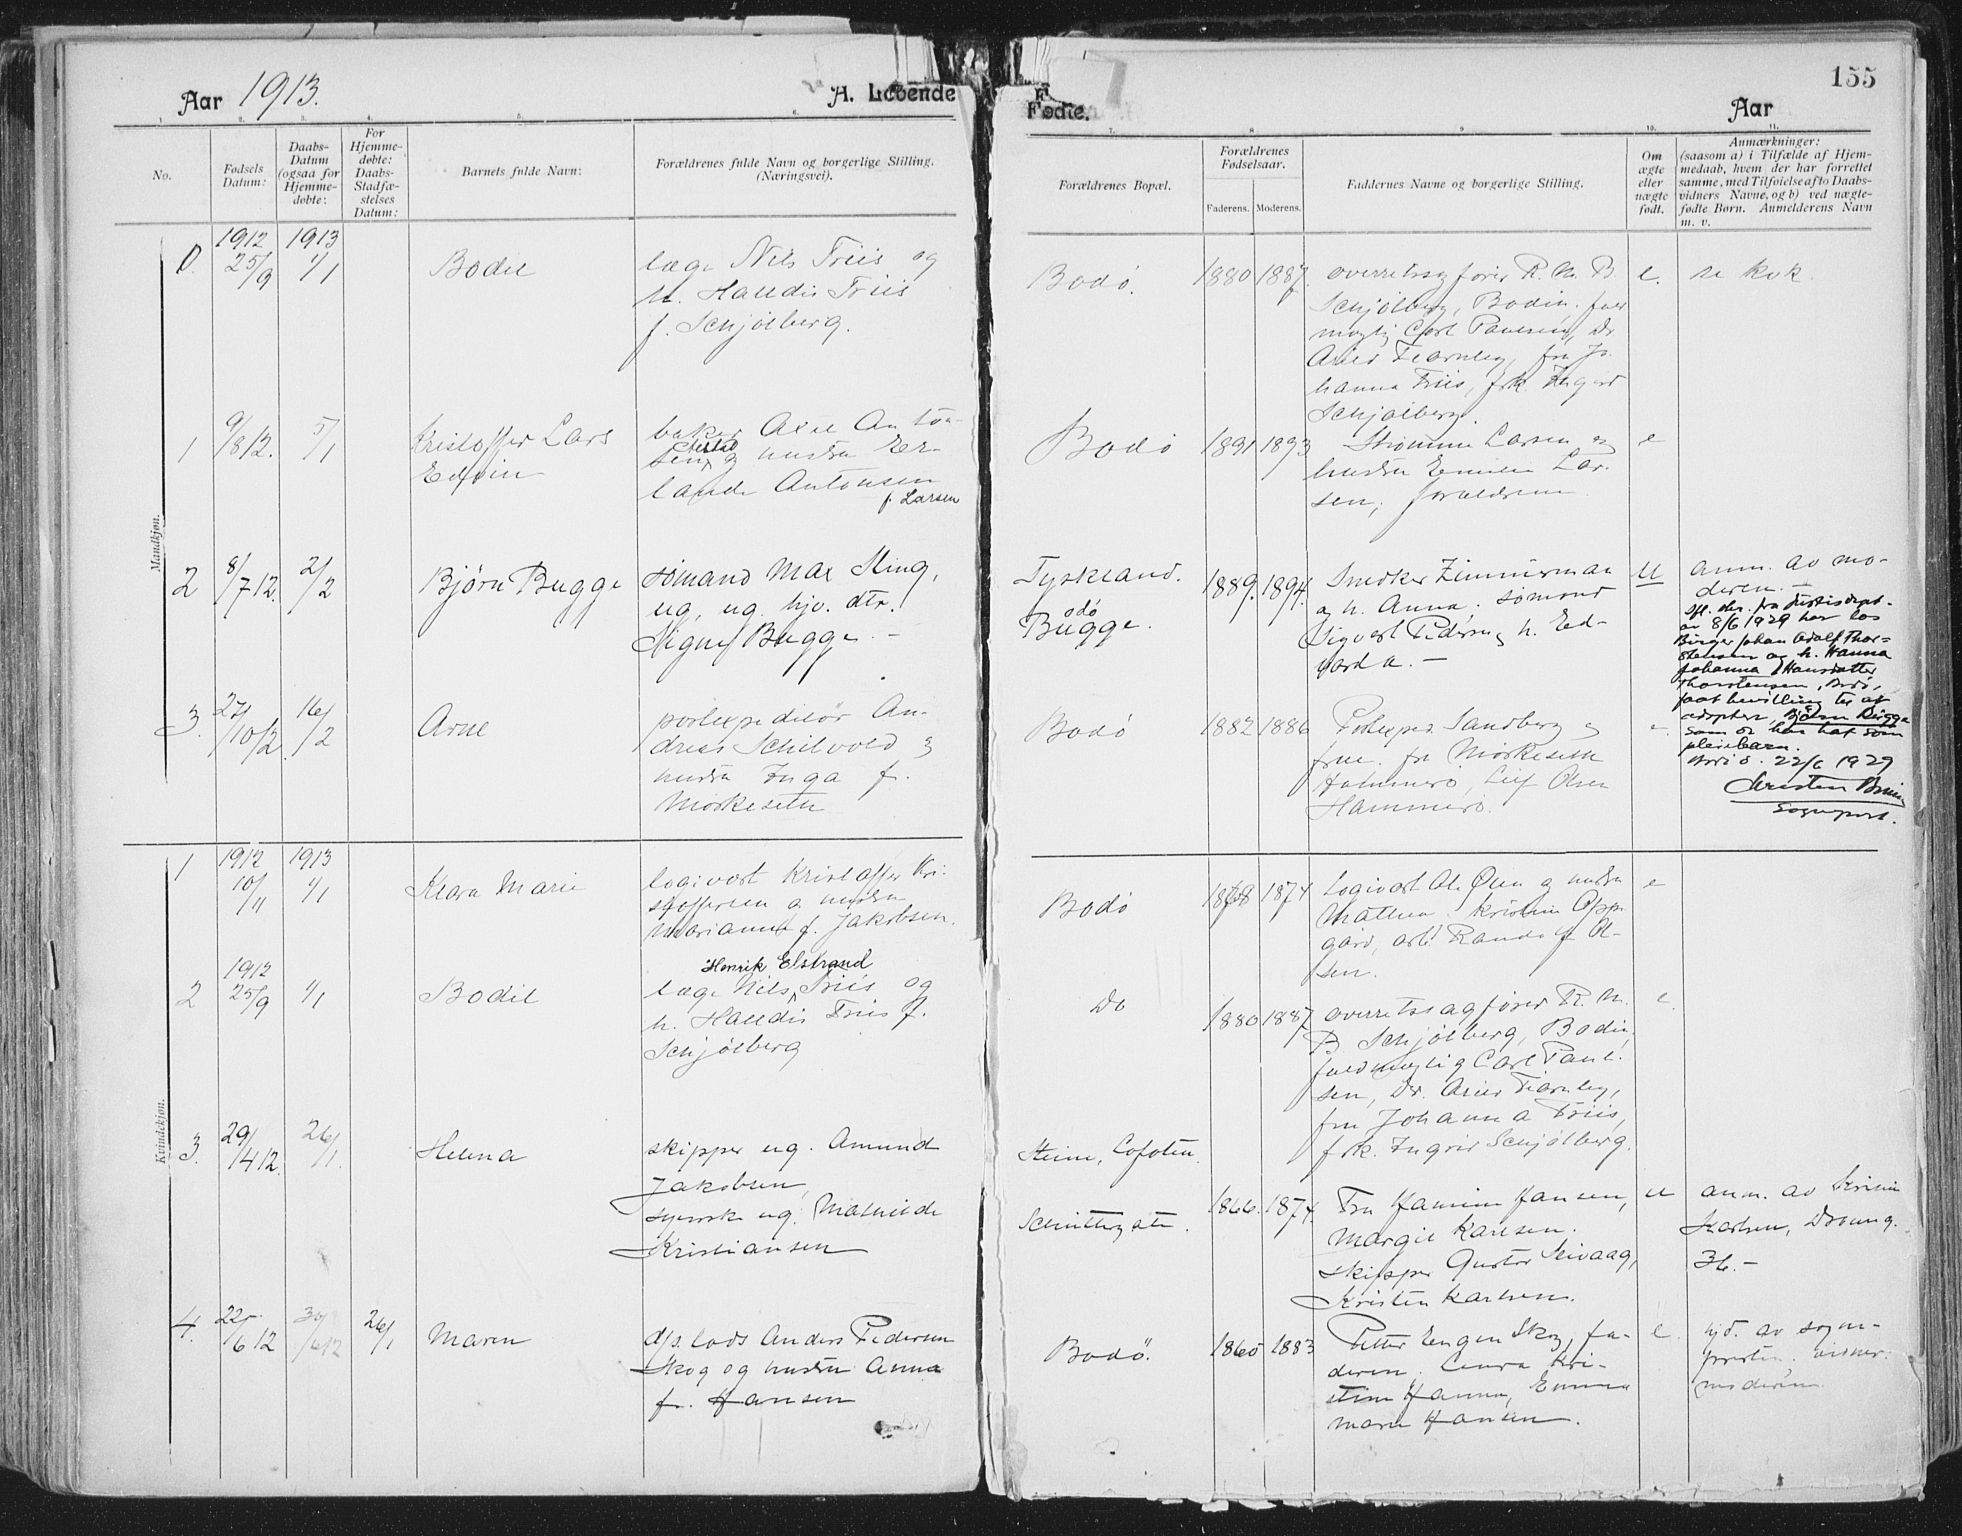 Aar 1913.
A. Levende
Fødte.
Aar
155
No.
Fødsels Datum:
Daabs-Datum (ogsaa for Hjemme-døbte:
For Hjemme-døbte: Daabs-Stadfæ-stelses Datum:
Barnets fulde Navn:
Forældrenes fulde Navn og borgerlige Stilling. (Næringsvei).
Forældrenes Bopæl.
Forældrenes Fødselsaar.
Faderens. Moderens.
Faddernes Navne og borgerlige Stilling.
Om ægte eller uægte født.
Anmærkninger:
(saasom a) i Tilfælde af Hjem-
medaab, hvem der har forrettet
samme, med Tilføielse af to Daabs-
vidners Navne, og b) ved uægte-
fødte Børn. Anmelderens Navn
m. v.
Mandkjøn.
0. 1912 25/9 1913 1/1 Bodil
læge Nils Friis og
h. Halldis Friis
f. Schjølberg.
Bodø. 1880 1887.
overretssagfører R. M. B.
Schjølberg, Bodin.
Carl Paulsen, Dr
Fearnley, fru Jo-
hanna Friis, frk.
Schjølberg.
e. se kvk.
1 9/8 12. 5/1 Kristoffer Lars
Edvin
baker Axel Anton-
sen og hustru Er-
lande Antonsen
f. Larsen
Bodø 1891 1893
Larsen og
hustru Emilie Lar-
sen, forældrene
e
2 8/7 12. 2/2 Bjørn Bugge
sømand Max King,
ug, ug. hjv. dtr.
Signe Bugge. -
Tyskland.
Bodø
Bugge.
1889. 1894.
Smøker Zimmerman
og h. Anna. sømand
Sigvart Pedersen, h. Ed-
varda. -
U
anm. av mo-
deren.
av 8/6 1929 har los
Birger Johan Adolf Thor-
stensen og h. Hanna
Johanna Hansdatter
Thorstensen, Bodø,
faat bevilling til at
adoptere Bjørn Bugge
som de har hat som
pleiebarn.
Bodø. 22/6 1929
Sogneprest.
3. 27/10 12. 16/2 Arne
postexpeditør An-
dreas Schilvold og
hustru Inga f.
Mørkeseth
Bodø 1882 1886
Postexped. Sandberg og
frue. fr. Mørkeseth
Hammerø, Leif Olsen
Hammerø.
e.
Kvindekjøn.
1 1912 10/11 1913 1/1 Klara Marie
logivert Kristoffer Kri-
stoffersen og hustru
Marianne f. Jakobsen.
Bodø 1874
logivert Ole Olsen og hustru
Mathea. Kristine Opp-
gård, arb. Randolf Ol-
sen.
e
2 1912 25/9 1/1 Bodil
Henrik Elstrand
læge Nils Friis og
h. Halldis Friis f.
Schjølberg
Do 1880 1887
overretssagfører R. M.
B. Schjølberg, Bodin,
fuldmægtig Carl Paul-
sen, Dr. Fearnley,
fru Johanna Friis,
frk. Ingrid Schjølberg.
e
3. 29/4 12. 26/1. Helena
skipper ug. Amund
Jakobsen,
ug. Mathilde
Kristiansen
Steine, Lofoten.
1866. 1874.
Fru Hansen,
Margit Karlsen.
skipper Gustav Seivaag,
Kristen Karlsen.
u
anm. av
Karlsen,
36. -
4. 22/6 12 30/6 12 26/1 Maren
d/s. lods Anders Pedersen
Skog og hustru Anna
f. Hansen
Bodø. 1865 1883
Petter Engen Skog, fa-
deren. Laura Kri-
stine Hansen, Emma
Marie Hansen.
e.
hjd. av sogne-
presten. vidner.
moderen